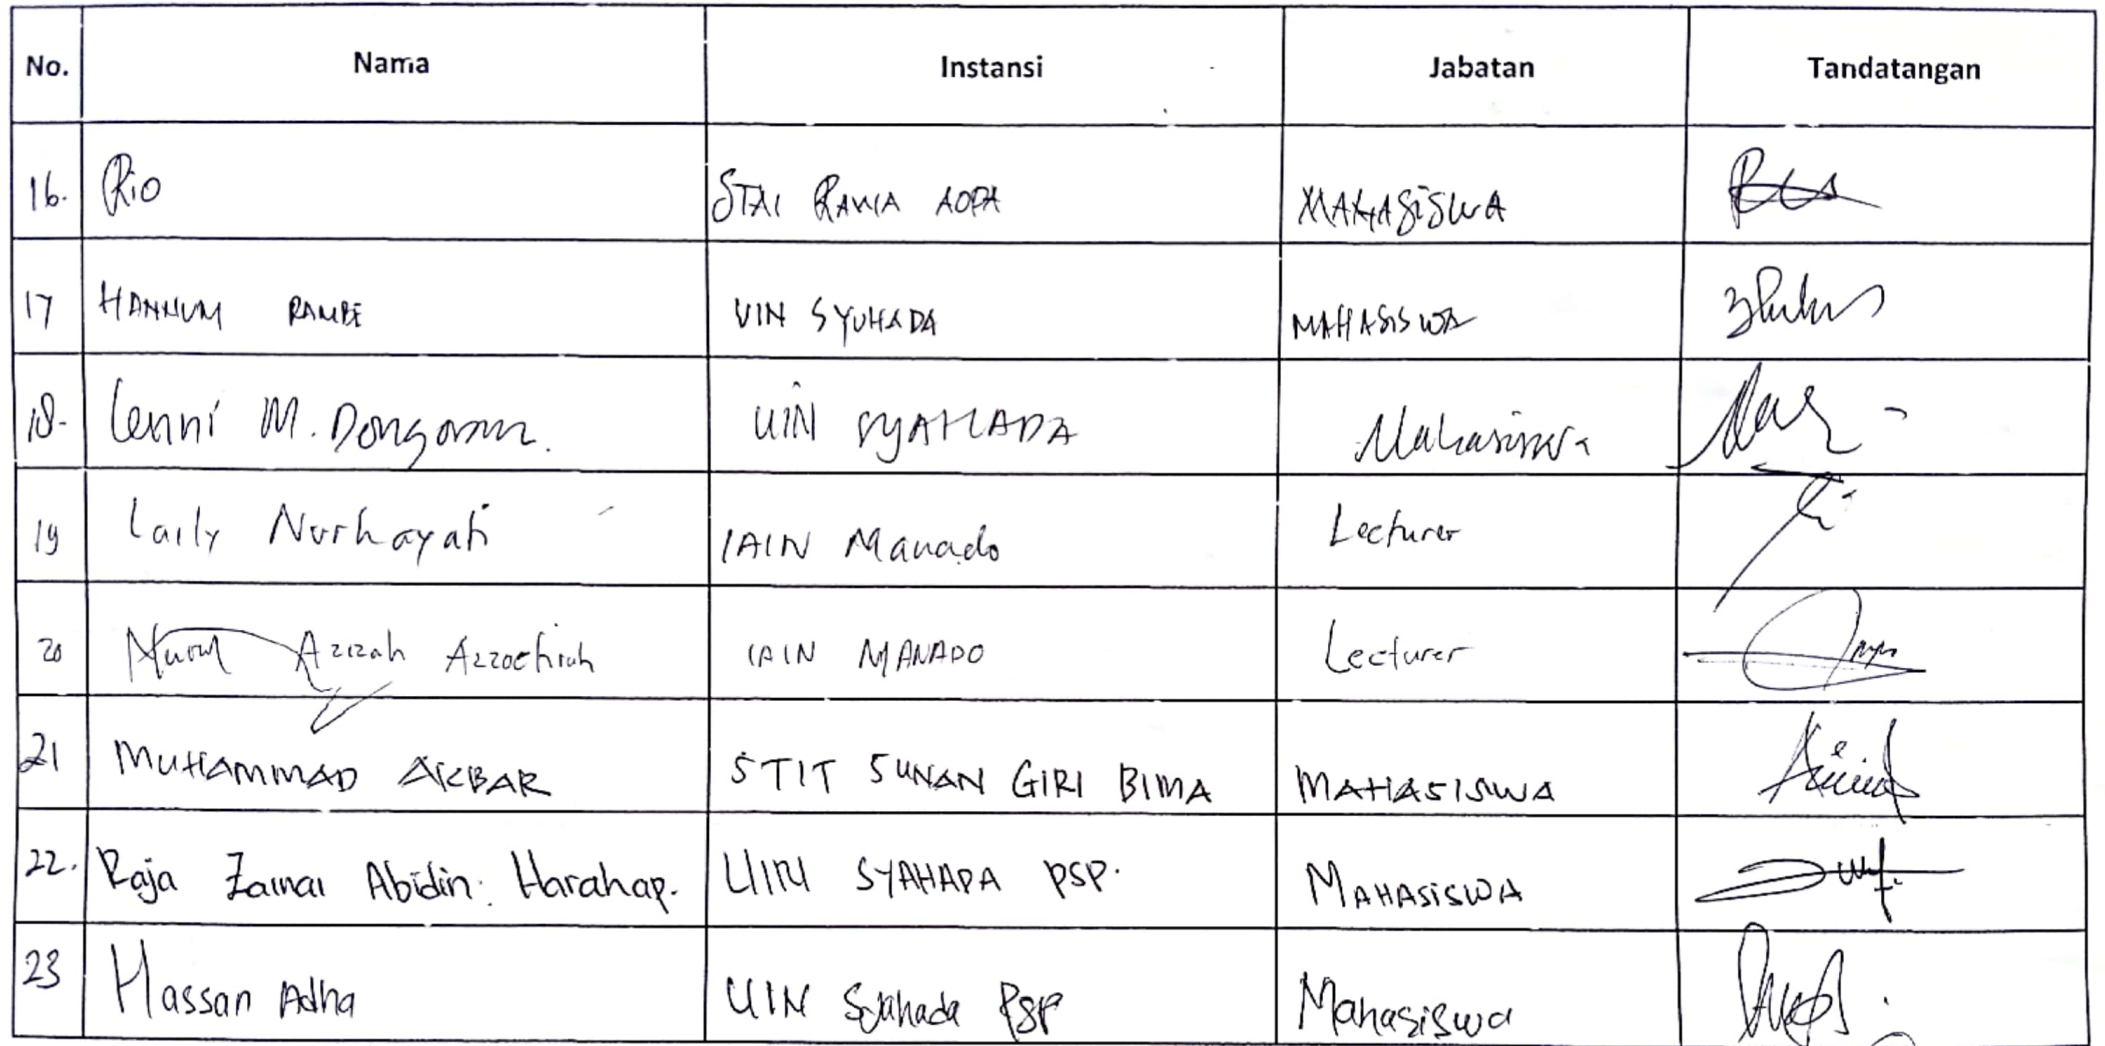 No. Nama Instansi Jabatan Tandatangan
16. Rio STAI RAWA AOPA MAHASISWA
17 HANNUM RAMBE UIN SYUHADA MAHASISWA
18. Lenni M. Dongoran. UIN SYAHADA Mahasiswa
19 Laily Nurhayati IAIN Manado Lecturer
20 Nurul Azizah Azzochirah IAIN MANADO Lecturer
21 MUHAMMAD AKBAR STIT SUNAN GIRI BIMA MAHASISWA
22. Raja Zainal Abidin Harahap. UIN SYAHADA PSP. MAHASISWA
23 Hassan Adha UIN Syahada PSP Mahasiswa